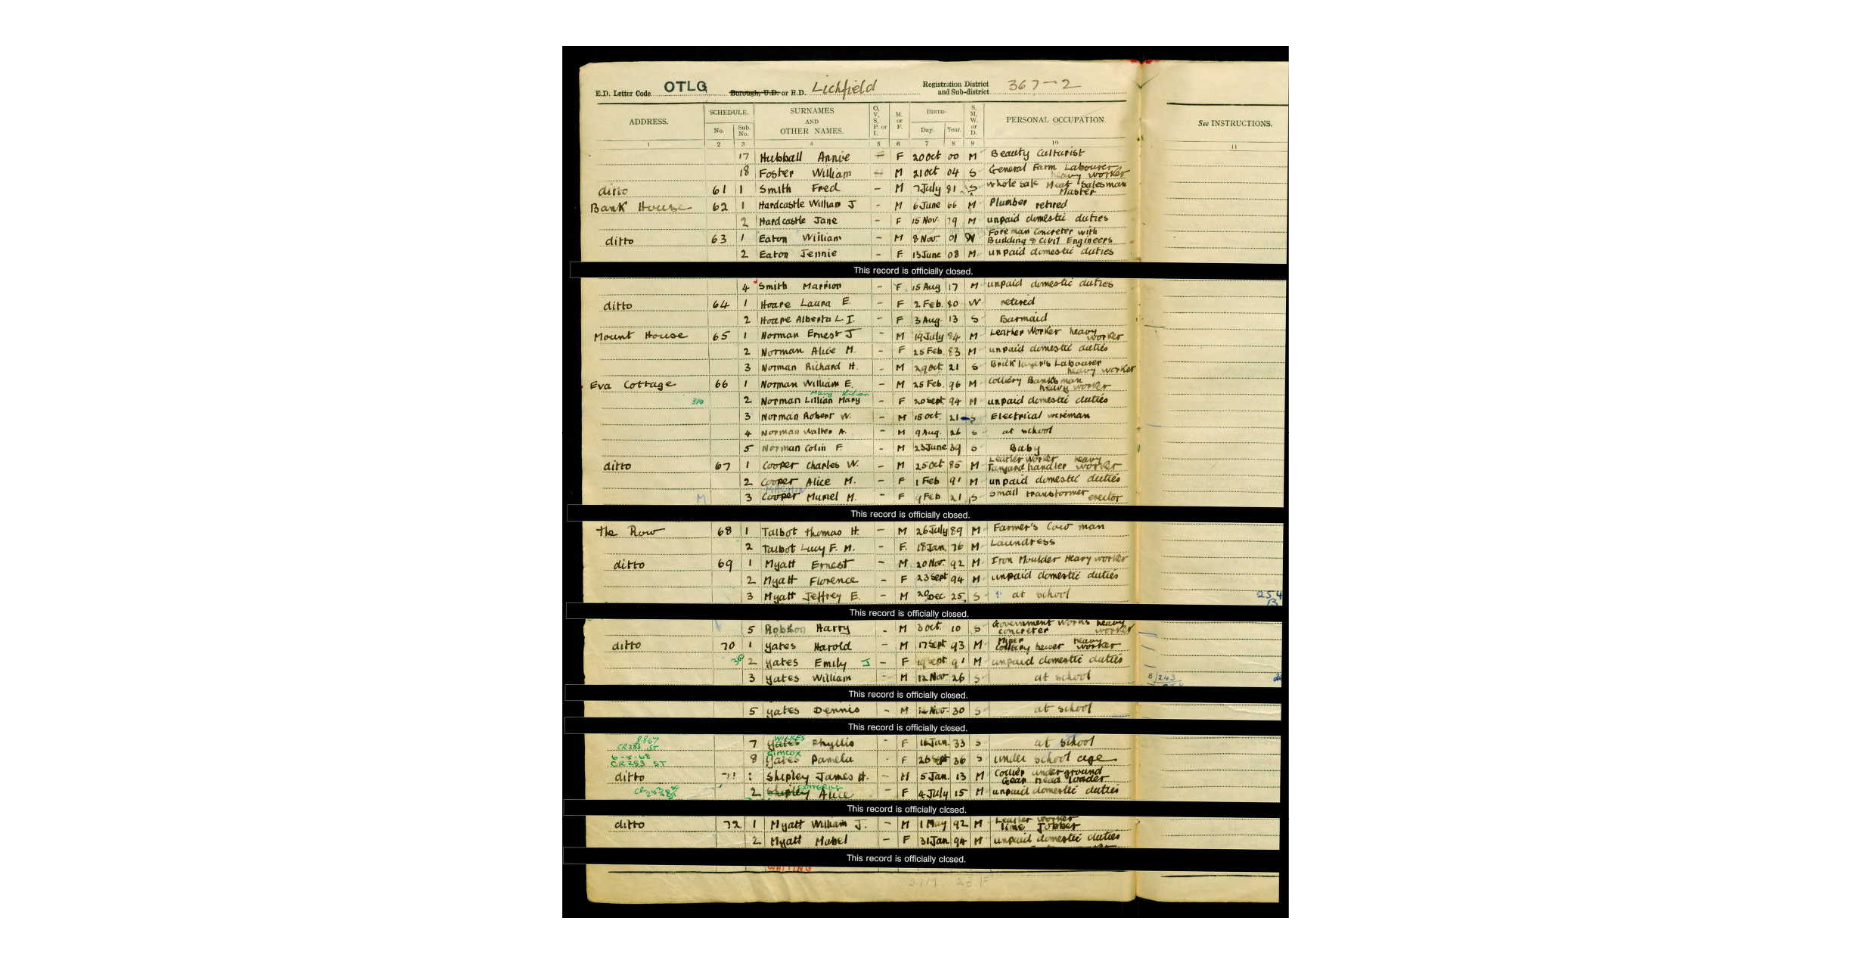 E.D. Letter Code OTLG Borough, U.D. or R.D. Lichfield Registration District and Sub-district 367-2
ADDRESS. SCHEDULE. No. Sub. No. SURNAMES AND OTHER NAMES. O. V. S. P. or I. M. or F. BIRTH- Day. Year. S. M. W. or D. PERSONAL OCCUPATION. See INSTRUCTIONS.
1 2 3 4 5 6 7 8 9 10 11
17 Hubball Annie - F 20 Oct 00 M Beauty Culturist
18 Foster William - M 21 Oct 04 S General Farm Labourer heavy worker
ditto 61 1 Smith Fred - M 7 July 81 S Whole sale Meat Salesman Master
Bank House 62 1 Hardcastle William J - M 6 June 66 M Plumber retired
2 Hardcastle Jane - F 15 Nov 79 M unpaid domestic duties
ditto 63 1 Eaton William - M 8 Nov 01 M Foreman Concreter with Building & Civil Engineers
2 Eaton Jennie - F 13 June 08 M unpaid domestic duties
This record is officially closed.
4 Smith Marrion - F 15 Aug 17 M unpaid domestic duties
ditto 64 1 Hoare Laura E. - F 2 Feb. 80 W retired
2 Hoare Alberta L. I. - F 3 Aug 13 S Barmaid
Mount House 65 1 Norman Ernest J - M 19 July 84 M Leather Worker heavy worker
2 Norman Alice M. - F 25 Feb. 83 M unpaid domestic duties
3 Norman Richard H. - M 29 Oct 21 S Bricklayer's Labourer heavy worker
Eva Cottage 66 1 Norman William E. - M 25 Feb. 96 M Colliery Banksman heavy worker
Mary Lilian
2 Norman Lillian Mary - F 20 Sept 94 M unpaid domestic duties
3 Norman Robert W. - M 15 Oct 21 S Electrical wireman
4 Norman Walter A. - M 9 Aug. 26 S at school
5 Norman Colin F - M 23 June 39 S Baby
ditto 67 1 Cooper Charles W. - M 25 Oct 85 M Leather Worker heavy Tanyard handler worker
2 Cooper Alice M. - F 1 Feb 91 M unpaid domestic duties
M 3 Cooper Muriel M. - F 9 Feb 21 S Small transformer erector
This record is officially closed.
The Row 68 1 Talbot Thomas H. - M 26 July 89 M Farmer's Cow man
2 Talbot Lucy F. M. - F 18 Jan. 76 M Laundress
ditto 69 1 Myatt Ernest - M 20 Nov. 92 M Iron Moulder Heavy worker
2 Myatt Florence - F 23 Sept 94 M unpaid domestic duties
3 Myatt Jeffrey E. - M Dec 25 S at school
This record is officially closed.
5 Robson Harry - M 3 Oct. 10 S Government Works heavy concreter worker
ditto 70 1 Yates Harold - M 17 Sept 93 M heavy Colliery hewer worker
2 Yates Emily J - F 19 Sept 91 M unpaid domestic duties
3 Yates William - M 12 Nov 26 S at school
This record is officially closed.
5 Yates Dennis - M Nov. 30 S at school
This record is officially closed.
WILKES
7 Yates Phyllis - F 16 Jan. 33 S at school
SIMCOX
CR283 ST 8 Yates Pamela - F 26 Sept 36 S under school age
ditto 71 1 Shipley James H. - M 5 Jan. 13 M Collier underground Gear Head loader
2 Shipley Alice F 4 July 15 M unpaid domestic duties
This record is officially closed.
ditto 72 1 Myatt William J. - M 1 May 92 M Leather worker Lime Jobber
2 Myatt Mabel - F 31 Jan. 94 M unpaid domestic duties
This record is officially closed.